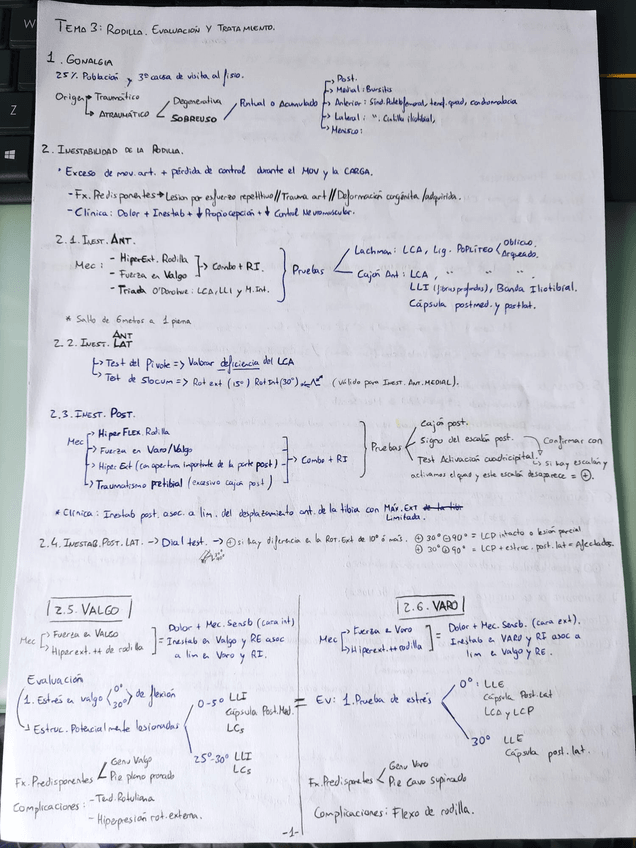 TEMA 3: RODILLA. EVALUACIÓN Y TRATAMIENTO.
1. GONALGIA
25% Población y 3ª causa de visita al fisio.
Origen → Traumático
→ ATRAUMÁTICO < Degenerativa
SOBREUSO
Puntual o Acumulado
→ Post.
→ Medial: Bursitis
→ Anterior: Sínd. Patelofemoral, tend. quad, condromalacia
→ Lateral: ". Cintilla iliotibial,
→ Menisco:
2. INESTABILIDAD DE LA RODILLA.
* Exceso de mov. art. + pérdida de control durante el MOV y la CARGA.
- Fx. Predisponentes → Lesion por esfuerzo repetitivo // Trauma art // Deformación congénita/adquirida.
- Clínica: Dolor + Inestab + ↓ Propiocepción + ↓ Control Neuromuscular.
2.1. INEST. ANT.
Mec: - HiperExt. Rodilla
- Fuerza en Valgo
→ Combo + RI.
- Triada O'Donohue: LCA, LLI y M. Int.
Pruebas
Lachman: LCA, Lig. POPLÍTEO < Oblicuo. Arqueado.
Cajón Ant: LCA, " "
LLI (fibras profundas), Banda Iliotibial.
Cápsula postmed. y postlat.
* Salto de 6 metros a 1 pierna
2.2. INEST. ANT LAT
→ Test del Pivote => Valorar deficiencia del LCA
→ Test de Slocum => Rot ext (15º) Rot Int (30º) (válido para Inest. Ant. MEDIAL).
2.3. INEST. POST.
Mec → HiperFLEX. Rodilla
→ Fuerza en Varo/Valgo
→ Hiper Ext (con apertura importante de la parte post)
→ Traumatismo pretibial (excesivo cajón post)
→ Combo + RI
Pruebas
Cajón post.
Signo del escalón post.
Test Activación cuadricipital.
Confirmar con
→ si hay escalón y
activamos el quad y este escalón desaparece = ⊕.
* Clínica: Inestab post. asoc. a lim. del desplazamiento ant. de la tibia con MÁX. EXT
Limitada.
2.4. INESTAB. POST. LAT. → Dial test. → ⊕ si hay diferencia a la Rot. Ext de 10º ó más.
⊕ 30º ⊖ 90º = LCP intacto o lesión parcial
⊕ 30º ⊕ 90º = LCP + estruc. post. lat = Afectados.
2.5. VALGO
Mec → Fuerza en VALGO
→ Hiperext. ++ de rodilla
= Dolor + Mec. Sensb (cara int)
Inestab en Valgo y RE asoc
a lim en Varo y RI.
Evaluación
1. Estrés en valgo < 0º 30º > de flexión
→ Estruc. Potencialmente lesionadas
0-5º LLI
Cápsula Post. Med.
LCs
25º-30º LLI
LCs
Fx. Predisponentes < Genu Valgo
Pie plano pronado
Complicaciones: - Tend. Rotuliana
- Hiperpresión rot. externa.
2.6. VARO
Mec → Fuerza en Varo
→ Hiperext. ++ rodilla
= Dolor + Mec. Sensb. (cara ext).
Inestab en VARO y RI asoc a
lim en Valgo y RE.
= Ev: 1. Prueba de estrés
0º: LLE
Cápsula Post. Lat
LCA y LCP
30º LLE
Cápsula post. lat.
Fx. Predisponentes < Genu Varo
Pie Cavo Supinado
Complicaciones: Flexo de rodilla.
-1-